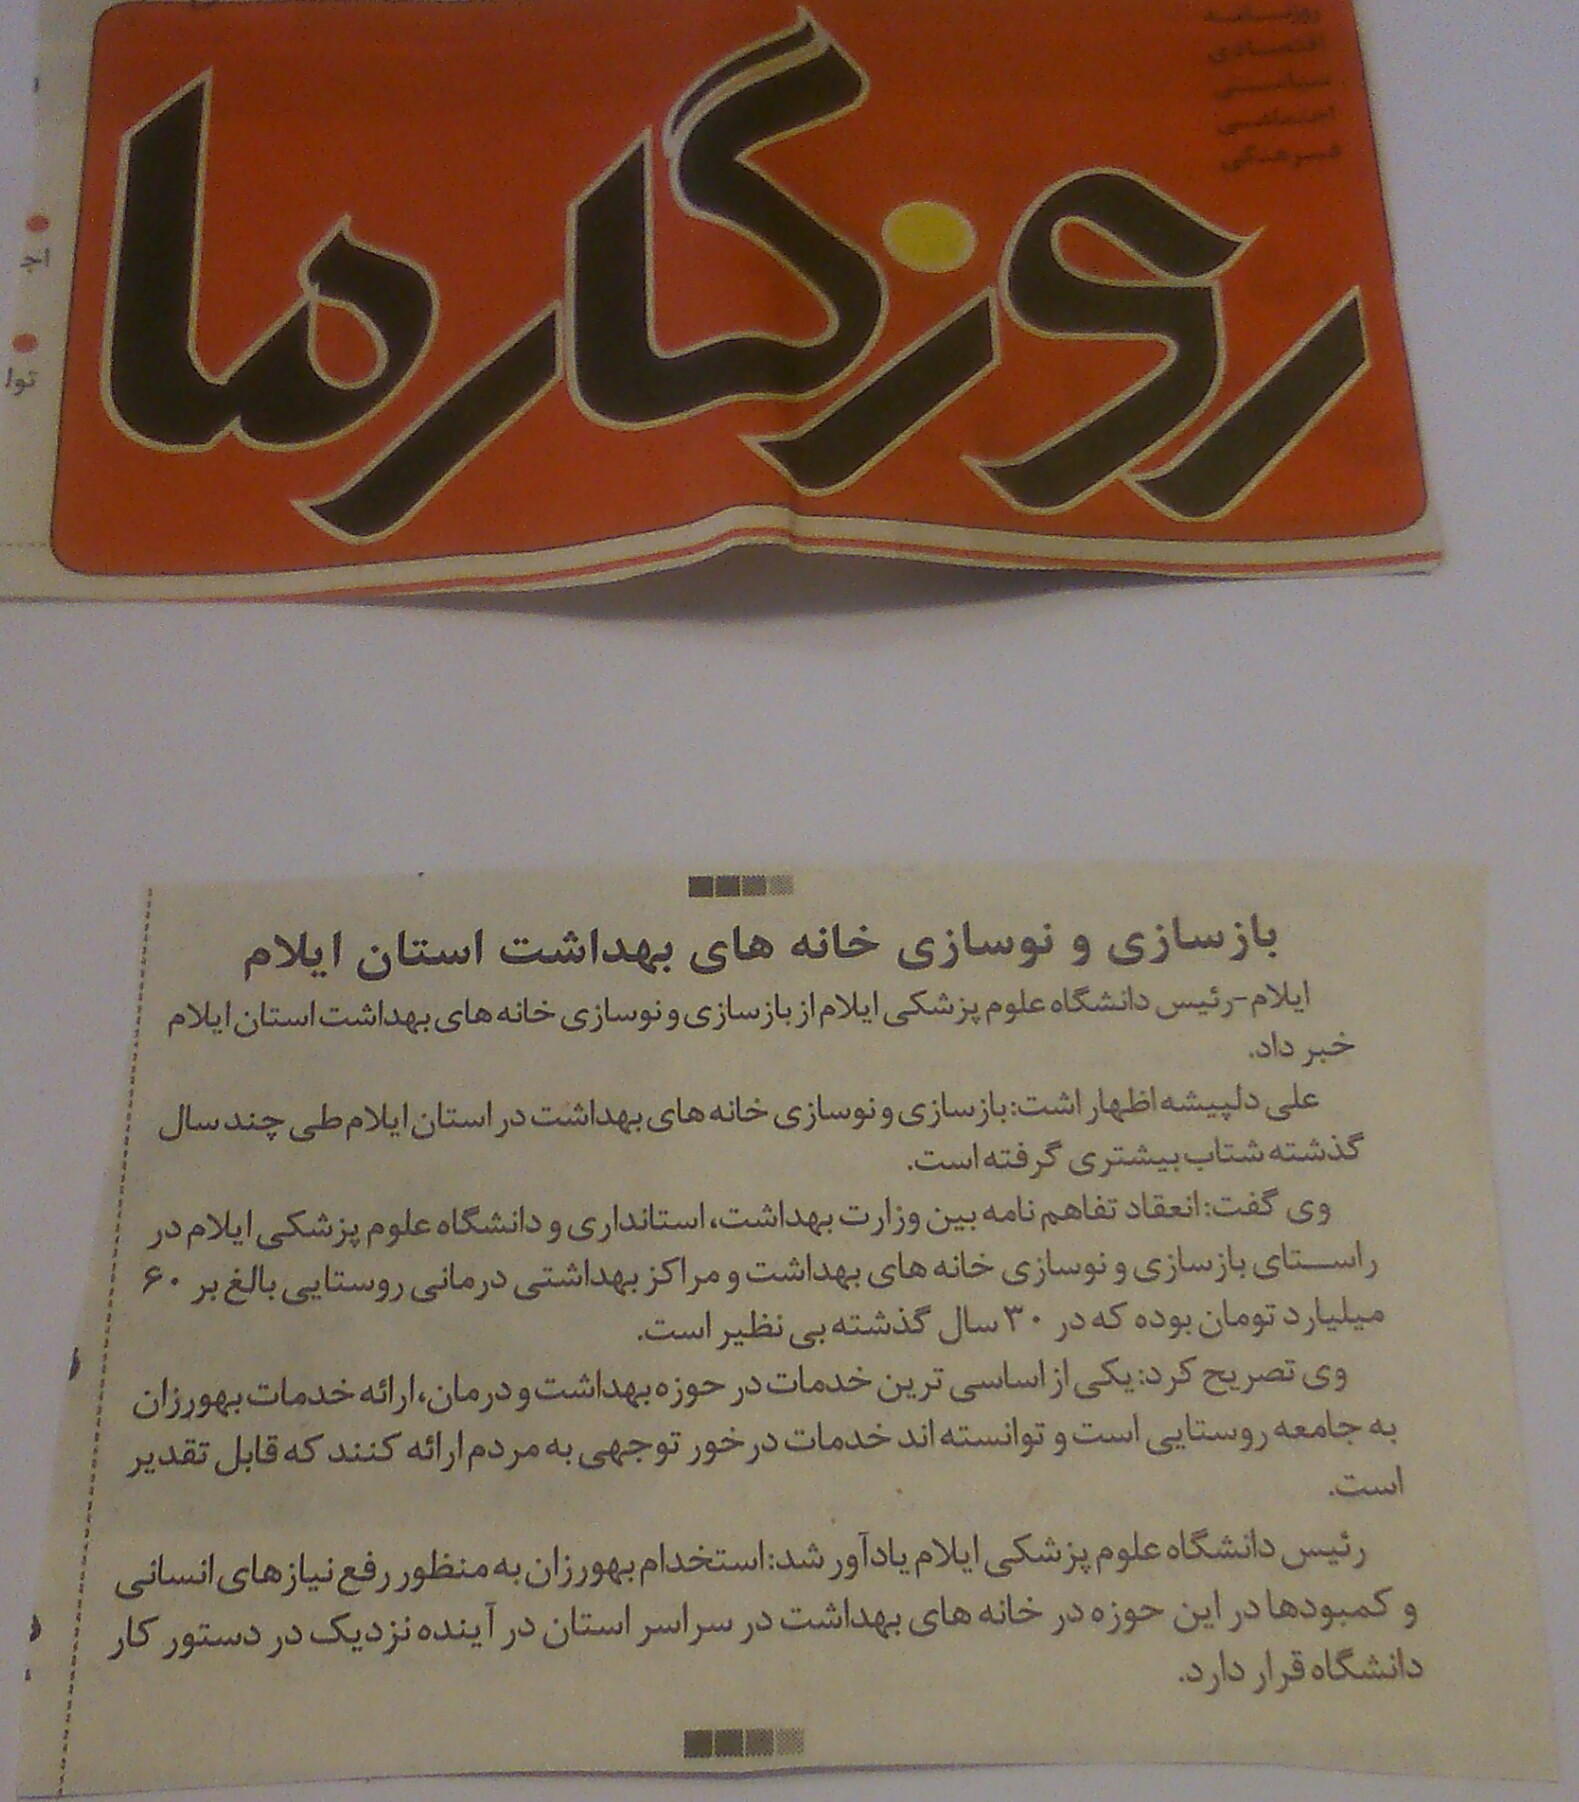 روزنامه
اقتصادی
سیاسی
اجتماعی
فرهنگی
روزگار ما
توا
بازسازی و نوسازی خانه های بهداشت استان ایلام
ایلام-رئیس دانشگاه علوم پزشکی ایلام از بازسازی و نوسازی خانه های بهداشت استان ایلام
خبر داد.
علی دلپیشه اظهار اشت: بازسازی و نوسازی خانه های بهداشت در استان ایلام طی چند سال
گذشته شتاب بیشتری گرفته است.
وی گفت: انعقاد تفاهم نامه بین وزارت بهداشت، استانداری و دانشگاه علوم پزشکی ایلام در
راستای بازسازی و نوسازی خانه های بهداشت و مراکز بهداشتی درمانی روستایی بالغ بر ۶۰
میلیارد تومان بوده که در ۳۰ سال گذشته بی نظیر است.
وی تصریح کرد: یکی از اساسی ترین خدمات در حوزه بهداشت و درمان، ارائه خدمات بهورزان
به جامعه روستایی است و توانسته اند خدمات در خور توجهی به مردم ارائه کنند که قابل تقدیر
است.
رئیس دانشگاه علوم پزشکی ایلام یادآور شد: استخدام بهورزان به منظور رفع نیازهای انسانی
و کمبودها در این حوزه در خانه های بهداشت در سراسر استان در آینده نزدیک در دستور کار
دانشگاه قرار دارد.